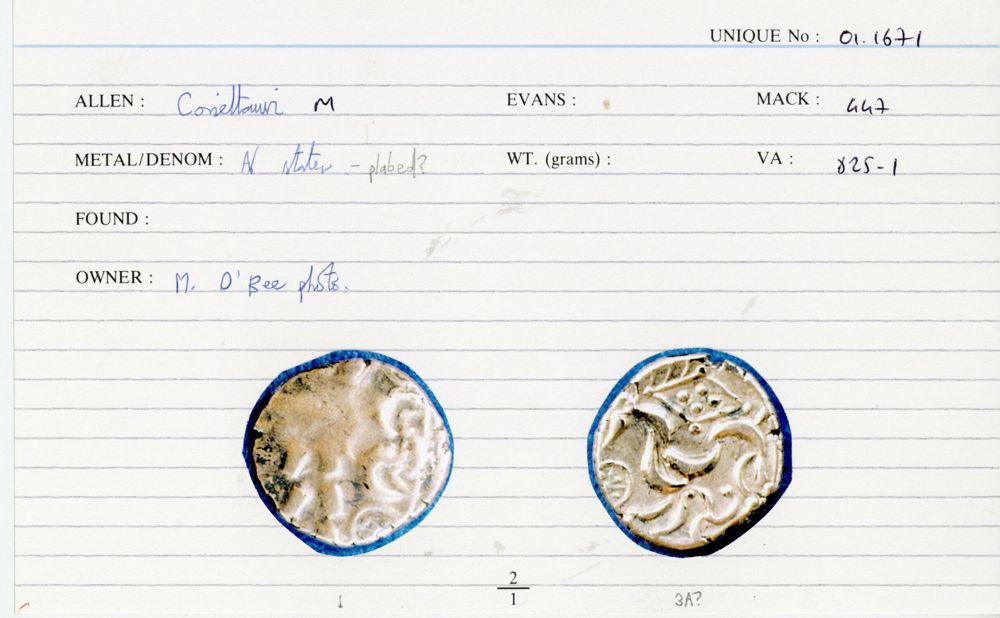 UNIQUE No : 01.1671
ALLEN : Corieltauvi M EVANS : MACK : 447
METAL/DENOM : N stater - plated? WT. (grams) : VA : 825-1
FOUND :
OWNER : M. O'Bee photo.
2
1 1 3A?